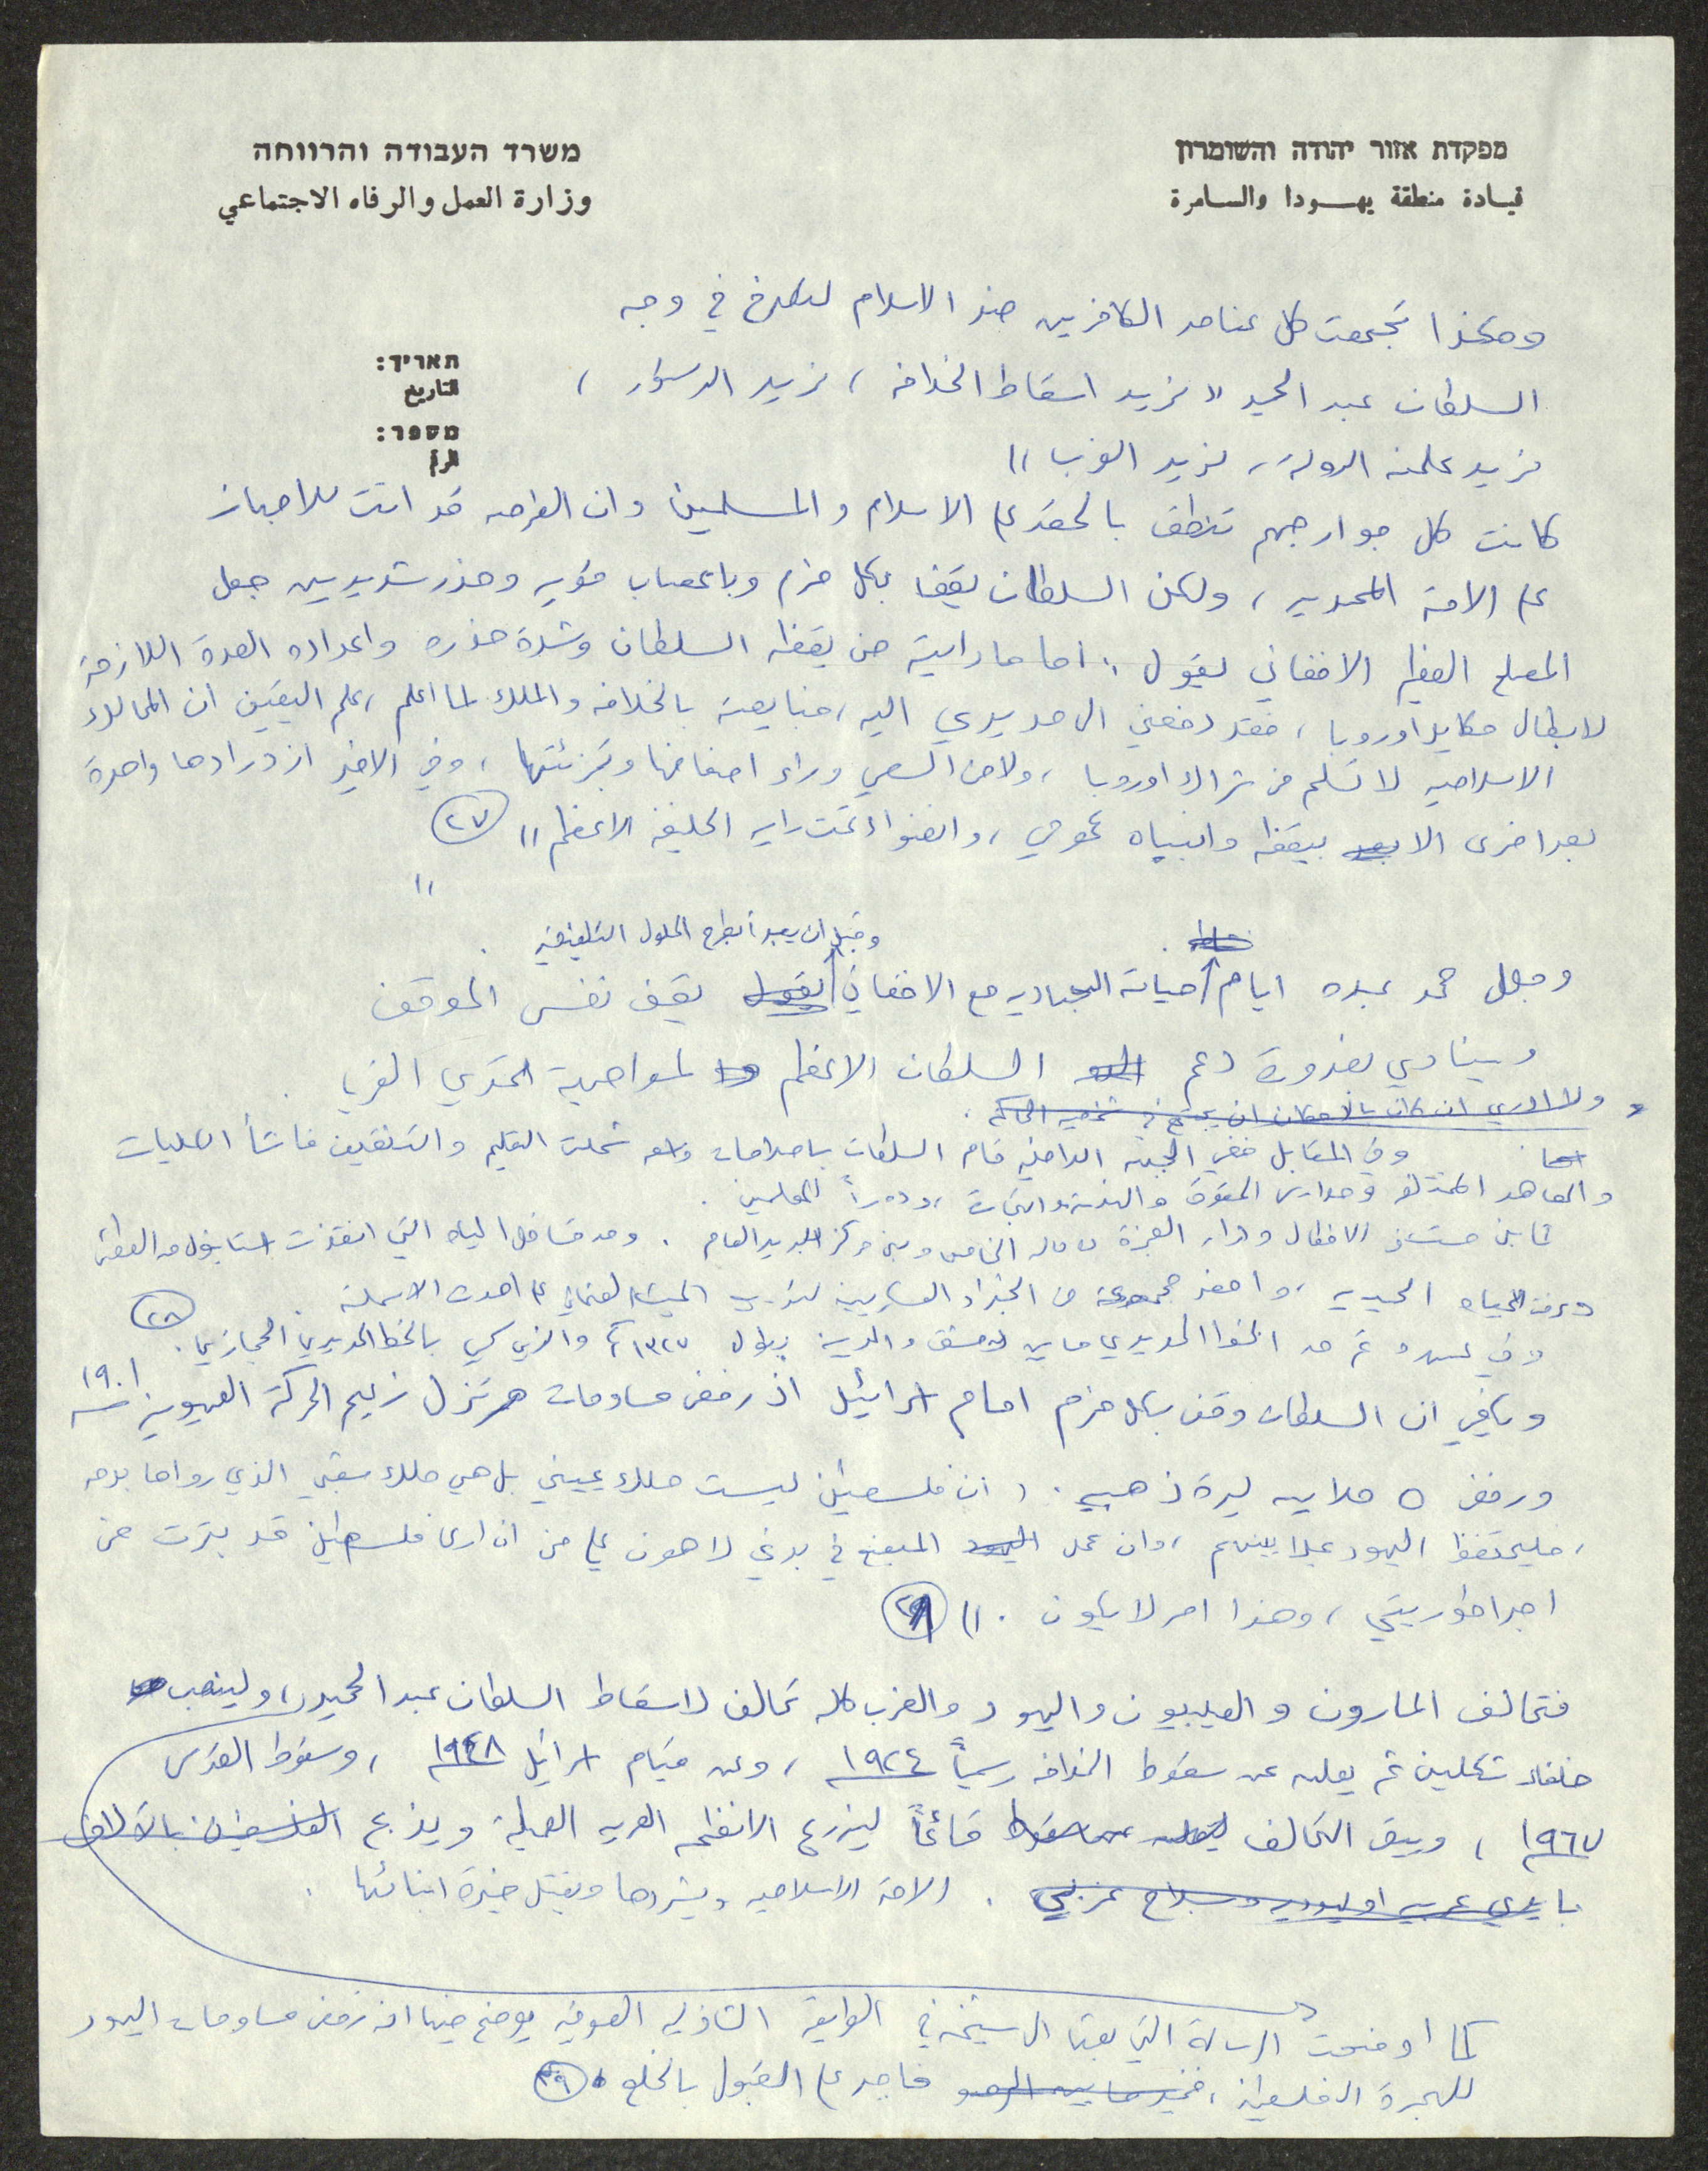 מפקדת אזור יהודה והשומרון
قيادة منطقة يهودا والسامرة
משרד העבודה והרווחה
وزارة العمل والرفاه الاجتماعي
תאריך:
التاريخ
מספר:
الرقم
وهكذا تجمعت كل عناصر الكافرين ضد الاسلام لتصرخ في وجه
السلطان عبد الحميد " نريد اسقاط الخلافة ، نريد الدستور ،
نريد علمنة الدولة ، نريد الغرب "
كانت كل جوارحهم تنطق بالحقد على الاسلام والمسلمين وان الفرصة قد اتت للاجهاز
على الامة المحمدية ، ولكن السلطان يقف بكل حزم وباعصاب قوية وحذر شديدين جعل
المصلح العظيم الافغاني يقول : اما ما رايته من يقظة السلطان وشدة حذره واعداده العدة اللازمة
لابطال مكايد اوروبا ، فقد دفعني الى مد يدي اليه ، فبايعته بالخلافة والملك لما اعلم ، علم اليقين ان الممالك
الاسلامية لا تسلم من شراك اوروبا ، ولا من السعي وراء اضعافها وتجزئتها ، وفي الاخير ازدرادها واحدة
بعد اخرى الا بيقظة وانتباه عمومي ، وانضواء تحت راية الخليفة الاعظم " ٢٧
وقبل ان يبدأ بطرح الحلول التلفيقية
وجعل محمد عبده ايام حياته الجهادية مع الافغاني يقول يقف نفس الموقف
وينادي بضرورة دعم السلطان الاعظم لمواجهة التحدي الغربي
ولا ادري ان كان بالامكان ان
وفي المقابل ففي الجبهة الداخلية قام السلطان باصلاحات شملت التعليم والتثقيف فانشأ الكليات
والمعاهد المختلفة ومدارس الحقوق والهندسة والتجارة ، ودوراً للمعلمين .
كما بنى مستشفى الاطفال ودار العجزة من ماله الخاص وبنى مركز البريد العام . ومد قساطل المياه التي انقذت استانبول من العطش
وغرفة الحياه الحميدية ، واحضر مجموعة من الخبراء العسكريين لتدريب الجيش العثماني على احدث الاسلحة . ٢٨
وفي عهده تم مد الخط الحديدي ما بين دمشق والمدينة بطول ١٣٢٧ كم والذي سمي بالخط الحديدي الحجازي .
ويكفي ان السلطان وقف بكل حزم امام اسرائيل اذ رفض مساومات هرتزل زعيم الحركة الصهيونية سنة ١٩٠١
ورفض ٥ ملايين ليرة ذهبية . ان فلسطين ليست ملك يميني بل هي ملك شعبي الذي رواها بدمه
، فليحتفظ اليهود بملايينهم ، وان عمل المبضع في بدني لاهون علي من ان ارى فلسطين قد بترت من
امبراطوريتي ، وهذا امر لا يكون . "
فتحالف المارون والصليبيون واليهود والغرب كله تحالف لاسقاط السلطان عبد الحميد ، ولينصب
خلفاء شكليين ثم يعلن عن سقوط الخلافة رسمياً ١٩٢٤ ، وعن قيام اسرائيل ١٩٤٨ ، وسقوط القدس
١٩٦٧ ، ويبقى التحالف قائماً ليزرع الانظمة العربية العميلة ويذبح الفلسطينيين بالالاف
بايدي عربية او يهودية وسلاح غربي . الامة الاسلامية ويشردها ويقتل خيرة ابنائها .
كما اوضحت الرسالة التي بعثها الى شيخه في الطريقة الشاذلية الصوفية يوضح فيها انه رفض مساومات اليهود
للهجرة الى فلسطين ، فاجبر على القبول بالخلع . ٢٩